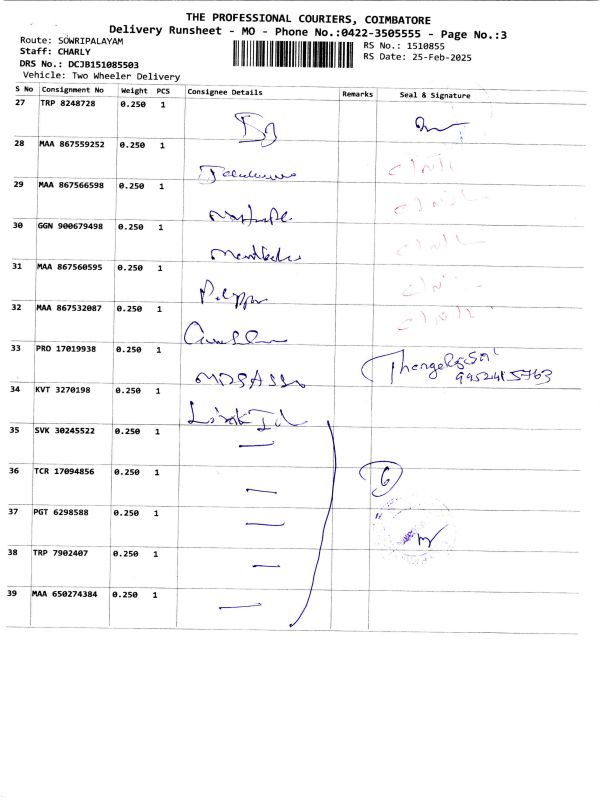 THE PROFESSIONAL COURIERS, COIMBATORE
Delivery Runsheet - MO - Phone No.:0422-3505555 - Page No.:3
Route: SOWRIPALAYAM
Staff: CHARLY
DRS No.: DCJB151085503
Vehicle: Two Wheeler Delivery
RS No.: 1510855
RS Date: 25-Feb-2025
S No Consignment No Weight PCS Consignee Details Remarks Seal & Signature
27 TRP 8248728 0.250 1
28 MAA 867559252 0.250 1
29 MAA 867566598 0.250 1
30 GGN 900679498 0.250 1
31 MAA 867560595 0.250 1
32 MAA 867532087 0.250 1
33 PRO 17019938 0.250 1
9952415763
34 KVT 3270198 0.250 1
35 SVK 30245522 0.250 1
36 TCR 17094856 0.250 1
6
37 PGT 6298588 0.250 1
38 TRP 7902407 0.250 1
39 MAA 650274384 0.250 1